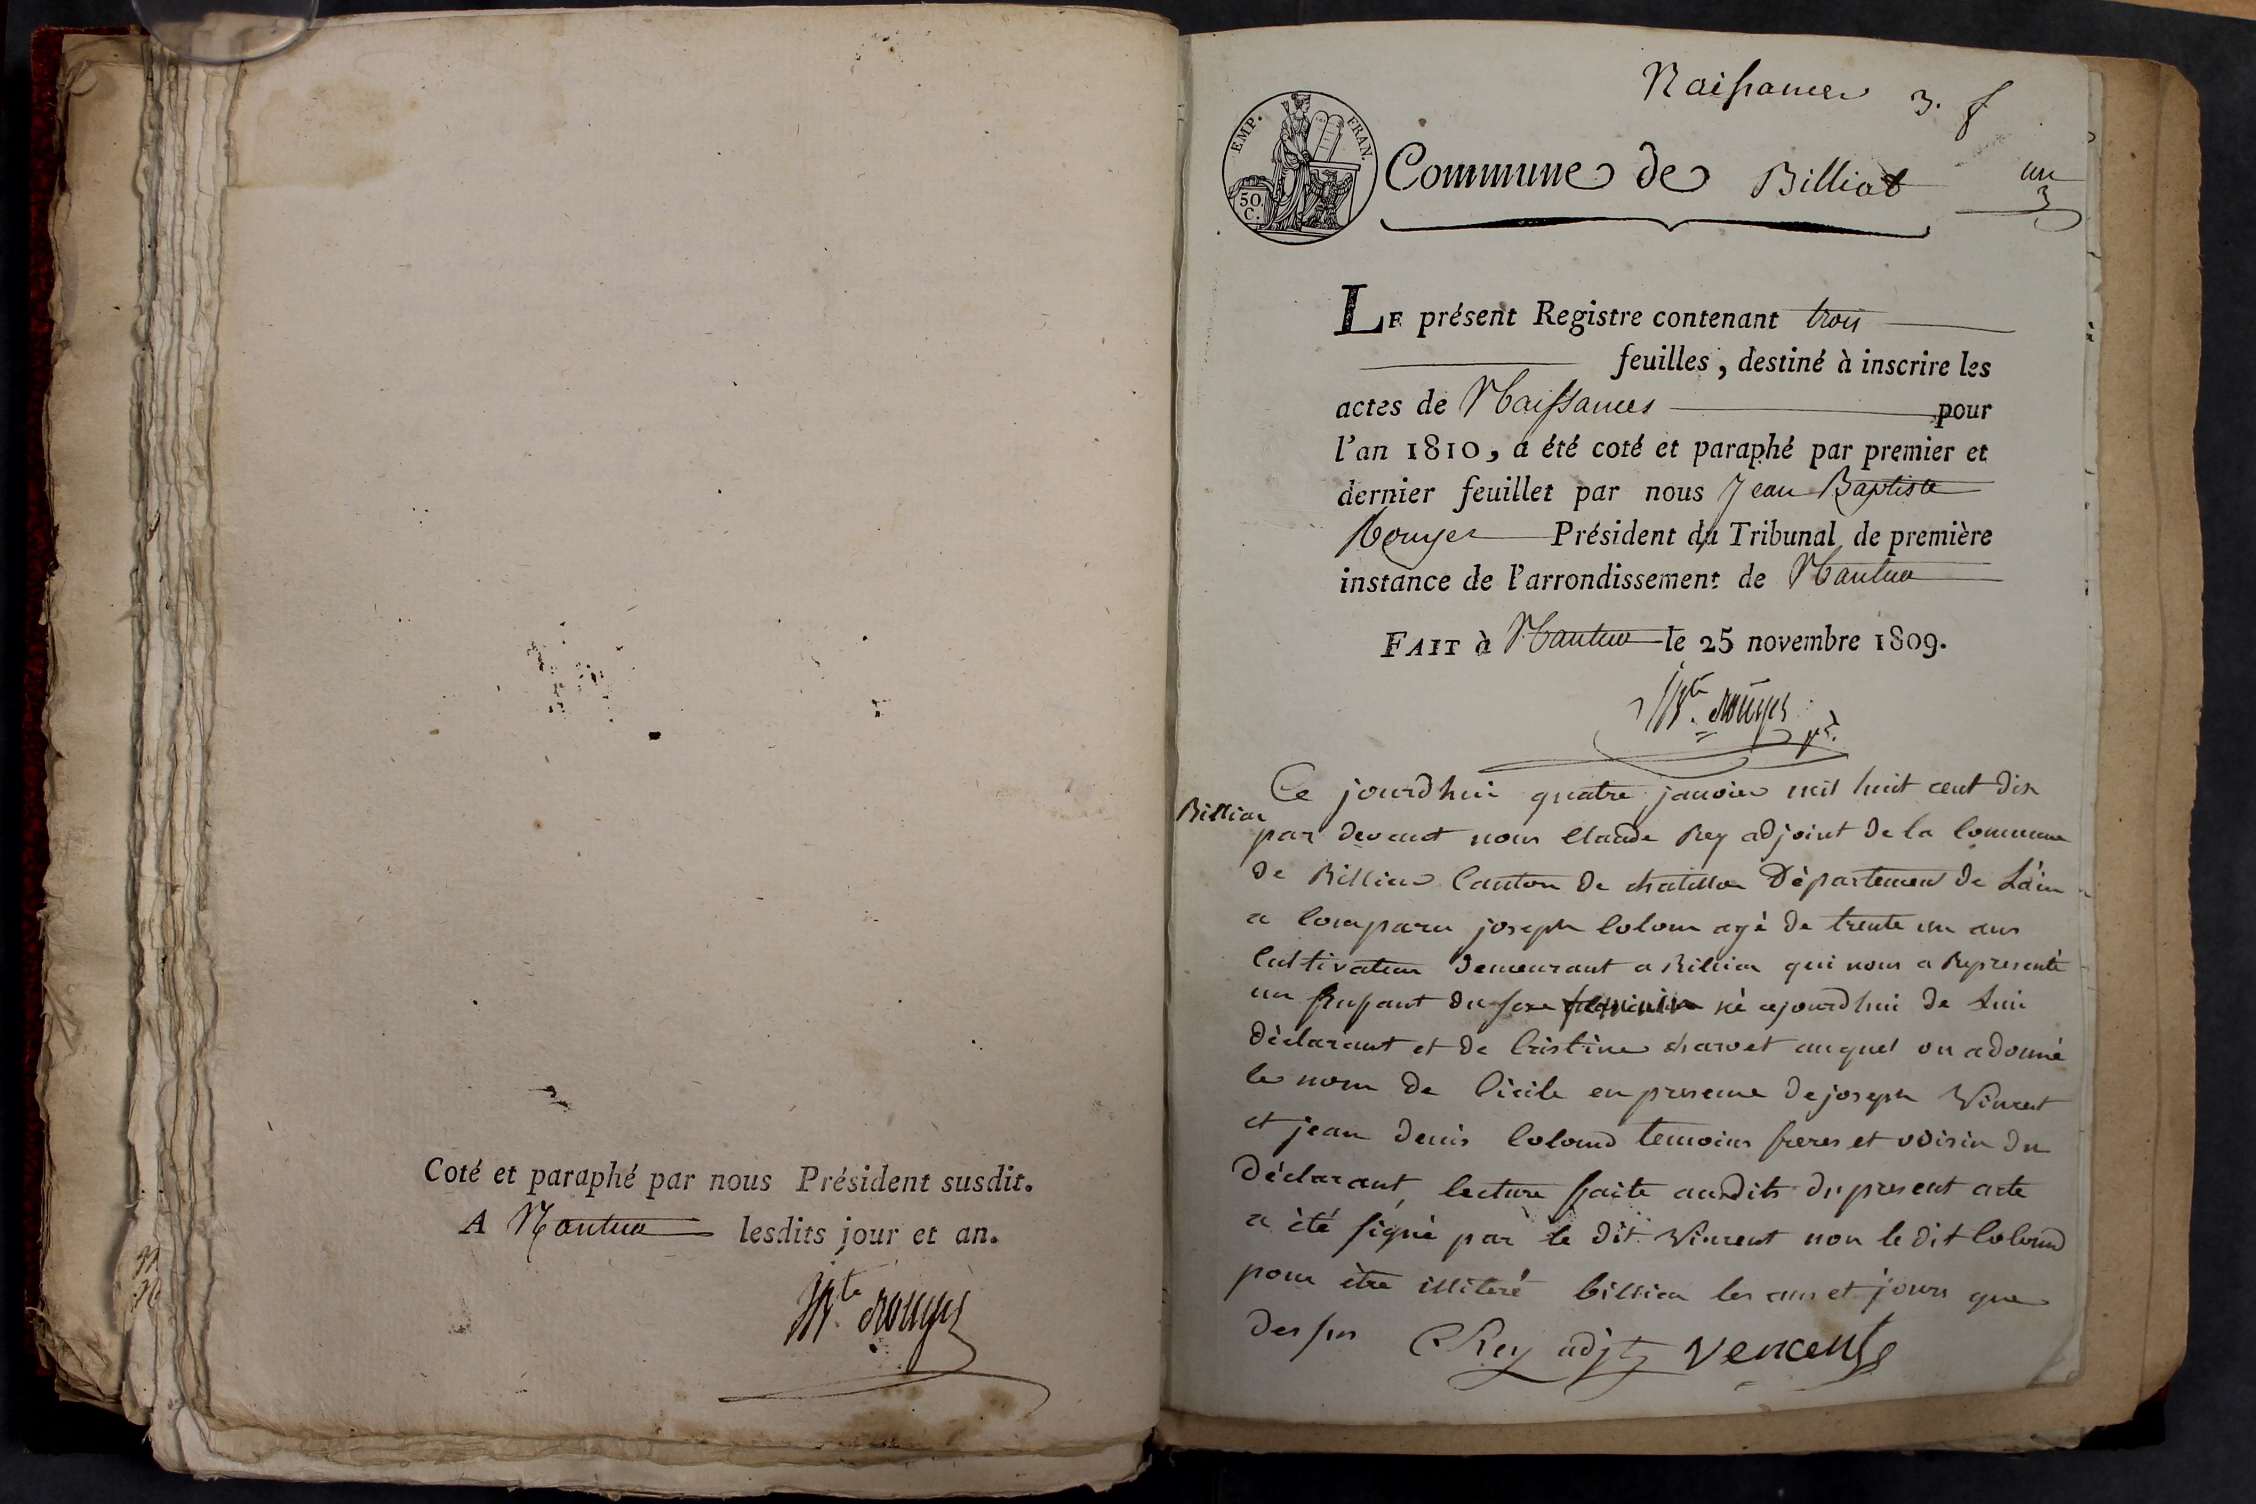 Coté et paraphé par nous Président susdit.
A Nantua lesdits jour et an.
JBte Rouyer
Naissances 3. f
EMP. FRAN.
50 C.
Commune de Billiat
un
3
LE présent Registre contenant trois
feuilles, destiné à inscrire les
actes de Naissances pour
l'an 1810, a été coté et paraphé par premier et
dernier feuillet par nous Jean Baptiste
Rouyer Président du Tribunal de première
instance de l'arrondissement de Nantua
FAIT à Nantua le 25 novembre 1809.
JBte Rouyer pt.
Billiat
Ce jourd'hui quatre janvier mil huit cent dix
par devant nous Claude Rey adjoint de la Commune
de Billiat Canton de chatillon Département de L'ain
a Comparu joseph Colom agé de trente un ans
Cultivateur demeurant a Billiat qui nous a Representé
un Enfant du sexe feminin né cejourd'hui de Lui
déclarant et de Cristine charvet auquel on a donné
le nom de Cicile en presence de joseph Vincent
et jean denis Colomd temoins freres et voisin du
Déclarant, lecture faite ausdits du present acte
a été signé par le dit Vincent non le dit Colomd
pour être illiteré billiat les ans et jours que
dessus CRey adjt Vencent